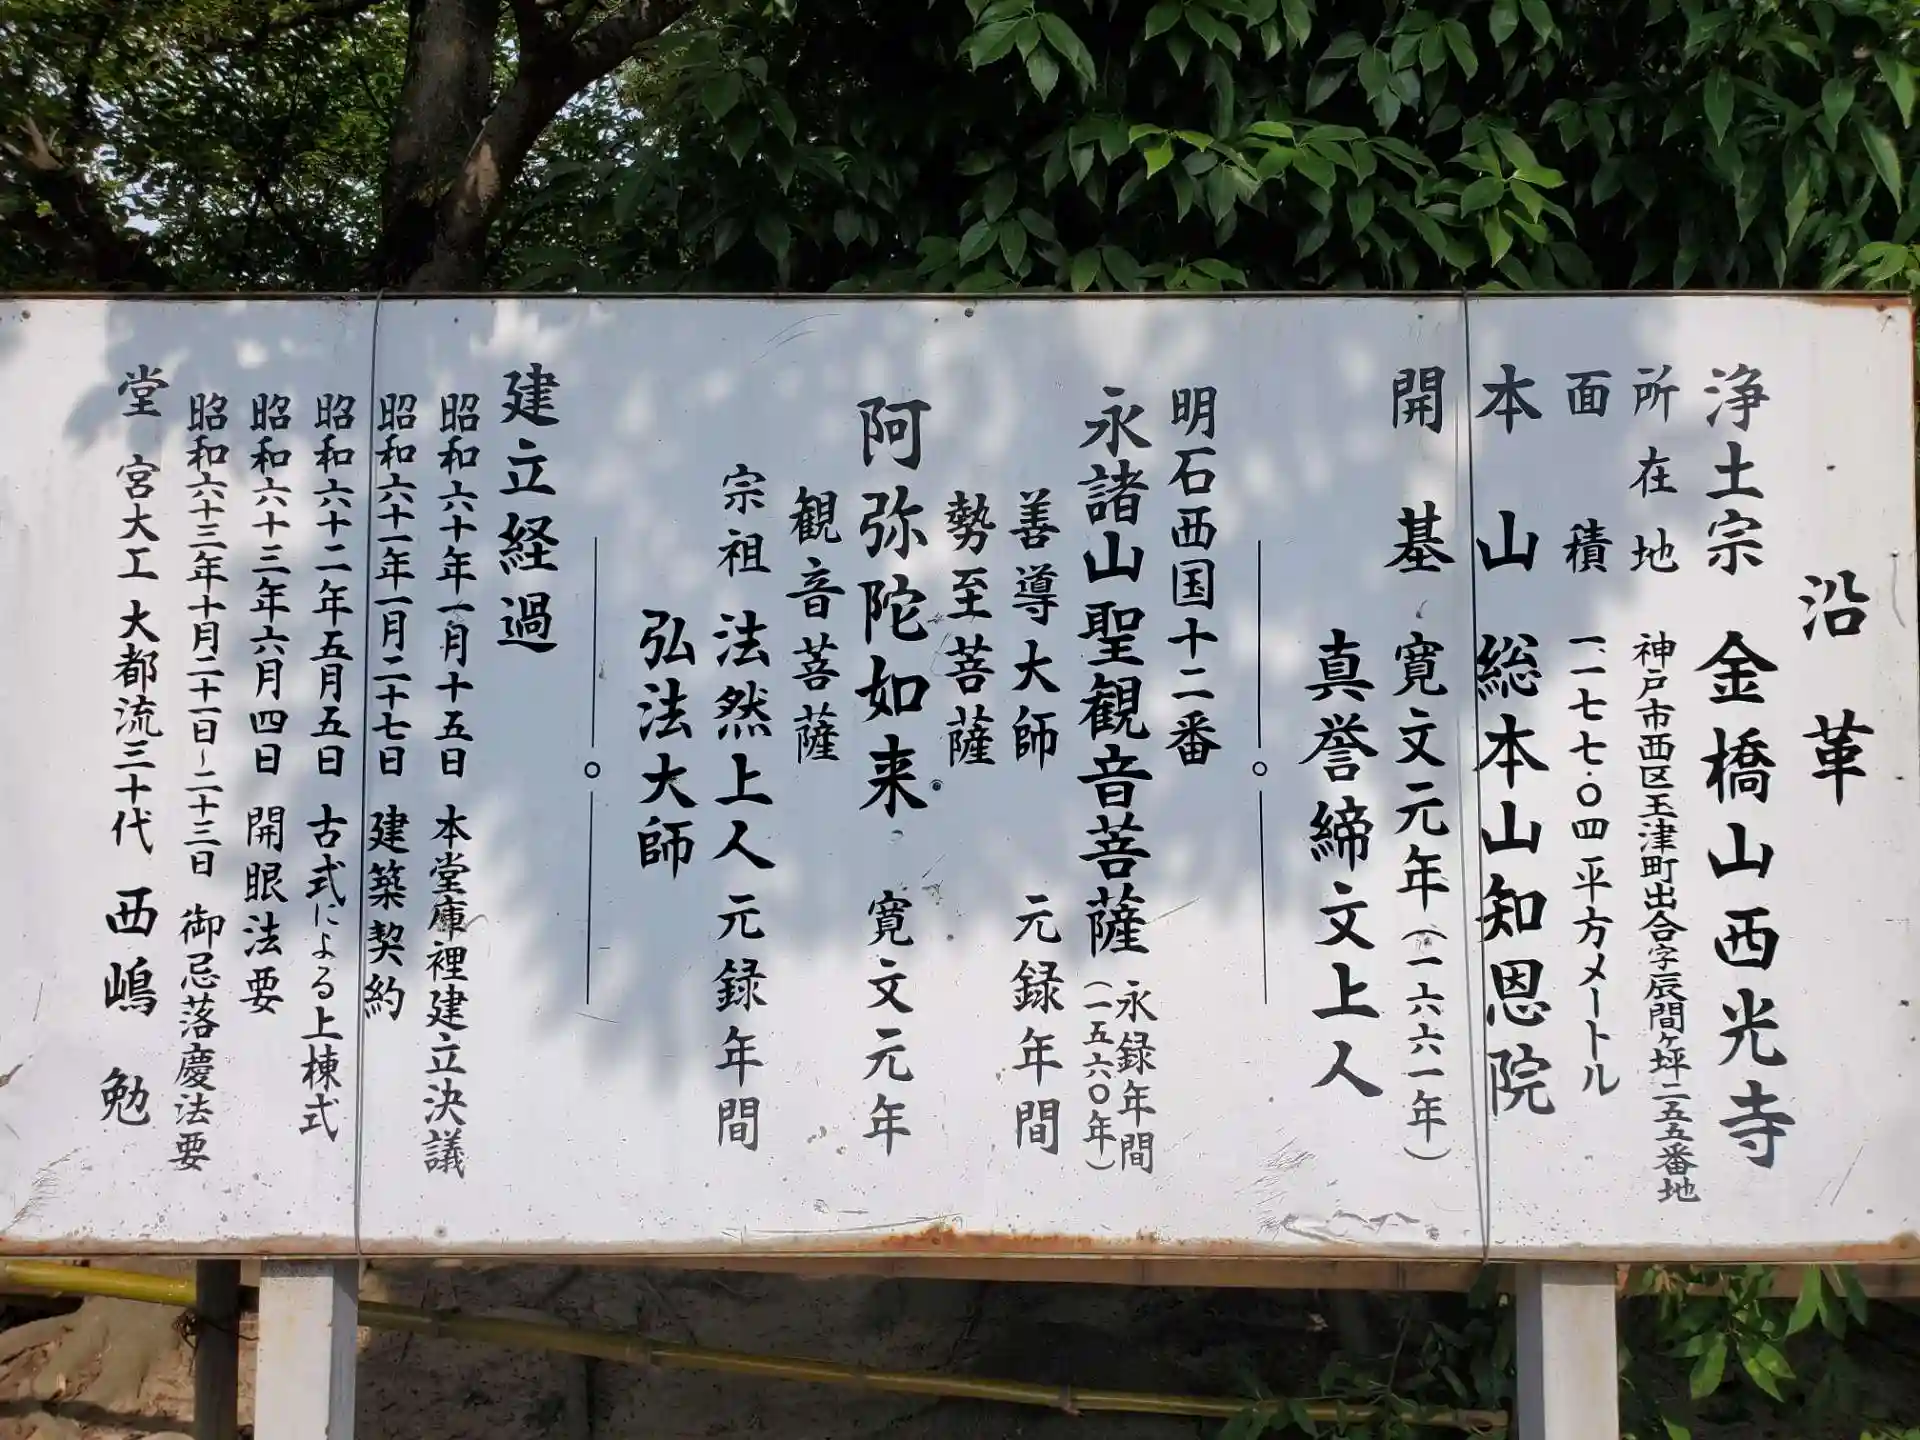 沿革
浄土宗 金橋山西光寺
所在地 神戸市西区玉津町出合字辰間ヶ坪二五五番地
面積 一、一七七・〇四平方メートル
本山 総本山知恩院
開基 寛文元年(一六六一年)
真誉締文上人
明石西国十二番
永諸山聖観音菩薩 永録年間(一五六〇年)
善導大師 元録年間
勢至菩薩
阿弥陀如来 寛文元年
観音菩薩
宗祖 法然上人 元録年間
弘法大師
建立経過
昭和六十年一月十五日 本堂庫裡建立決議
昭和六十一年一月二十七日 建築契約
昭和六十二年五月五日 古式による上棟式
昭和六十三年六月四日 開眼法要
昭和六十三年十月二十一日~二十三日 御忌落慶法要
堂宮大工 大都流三十代 西嶋 勉